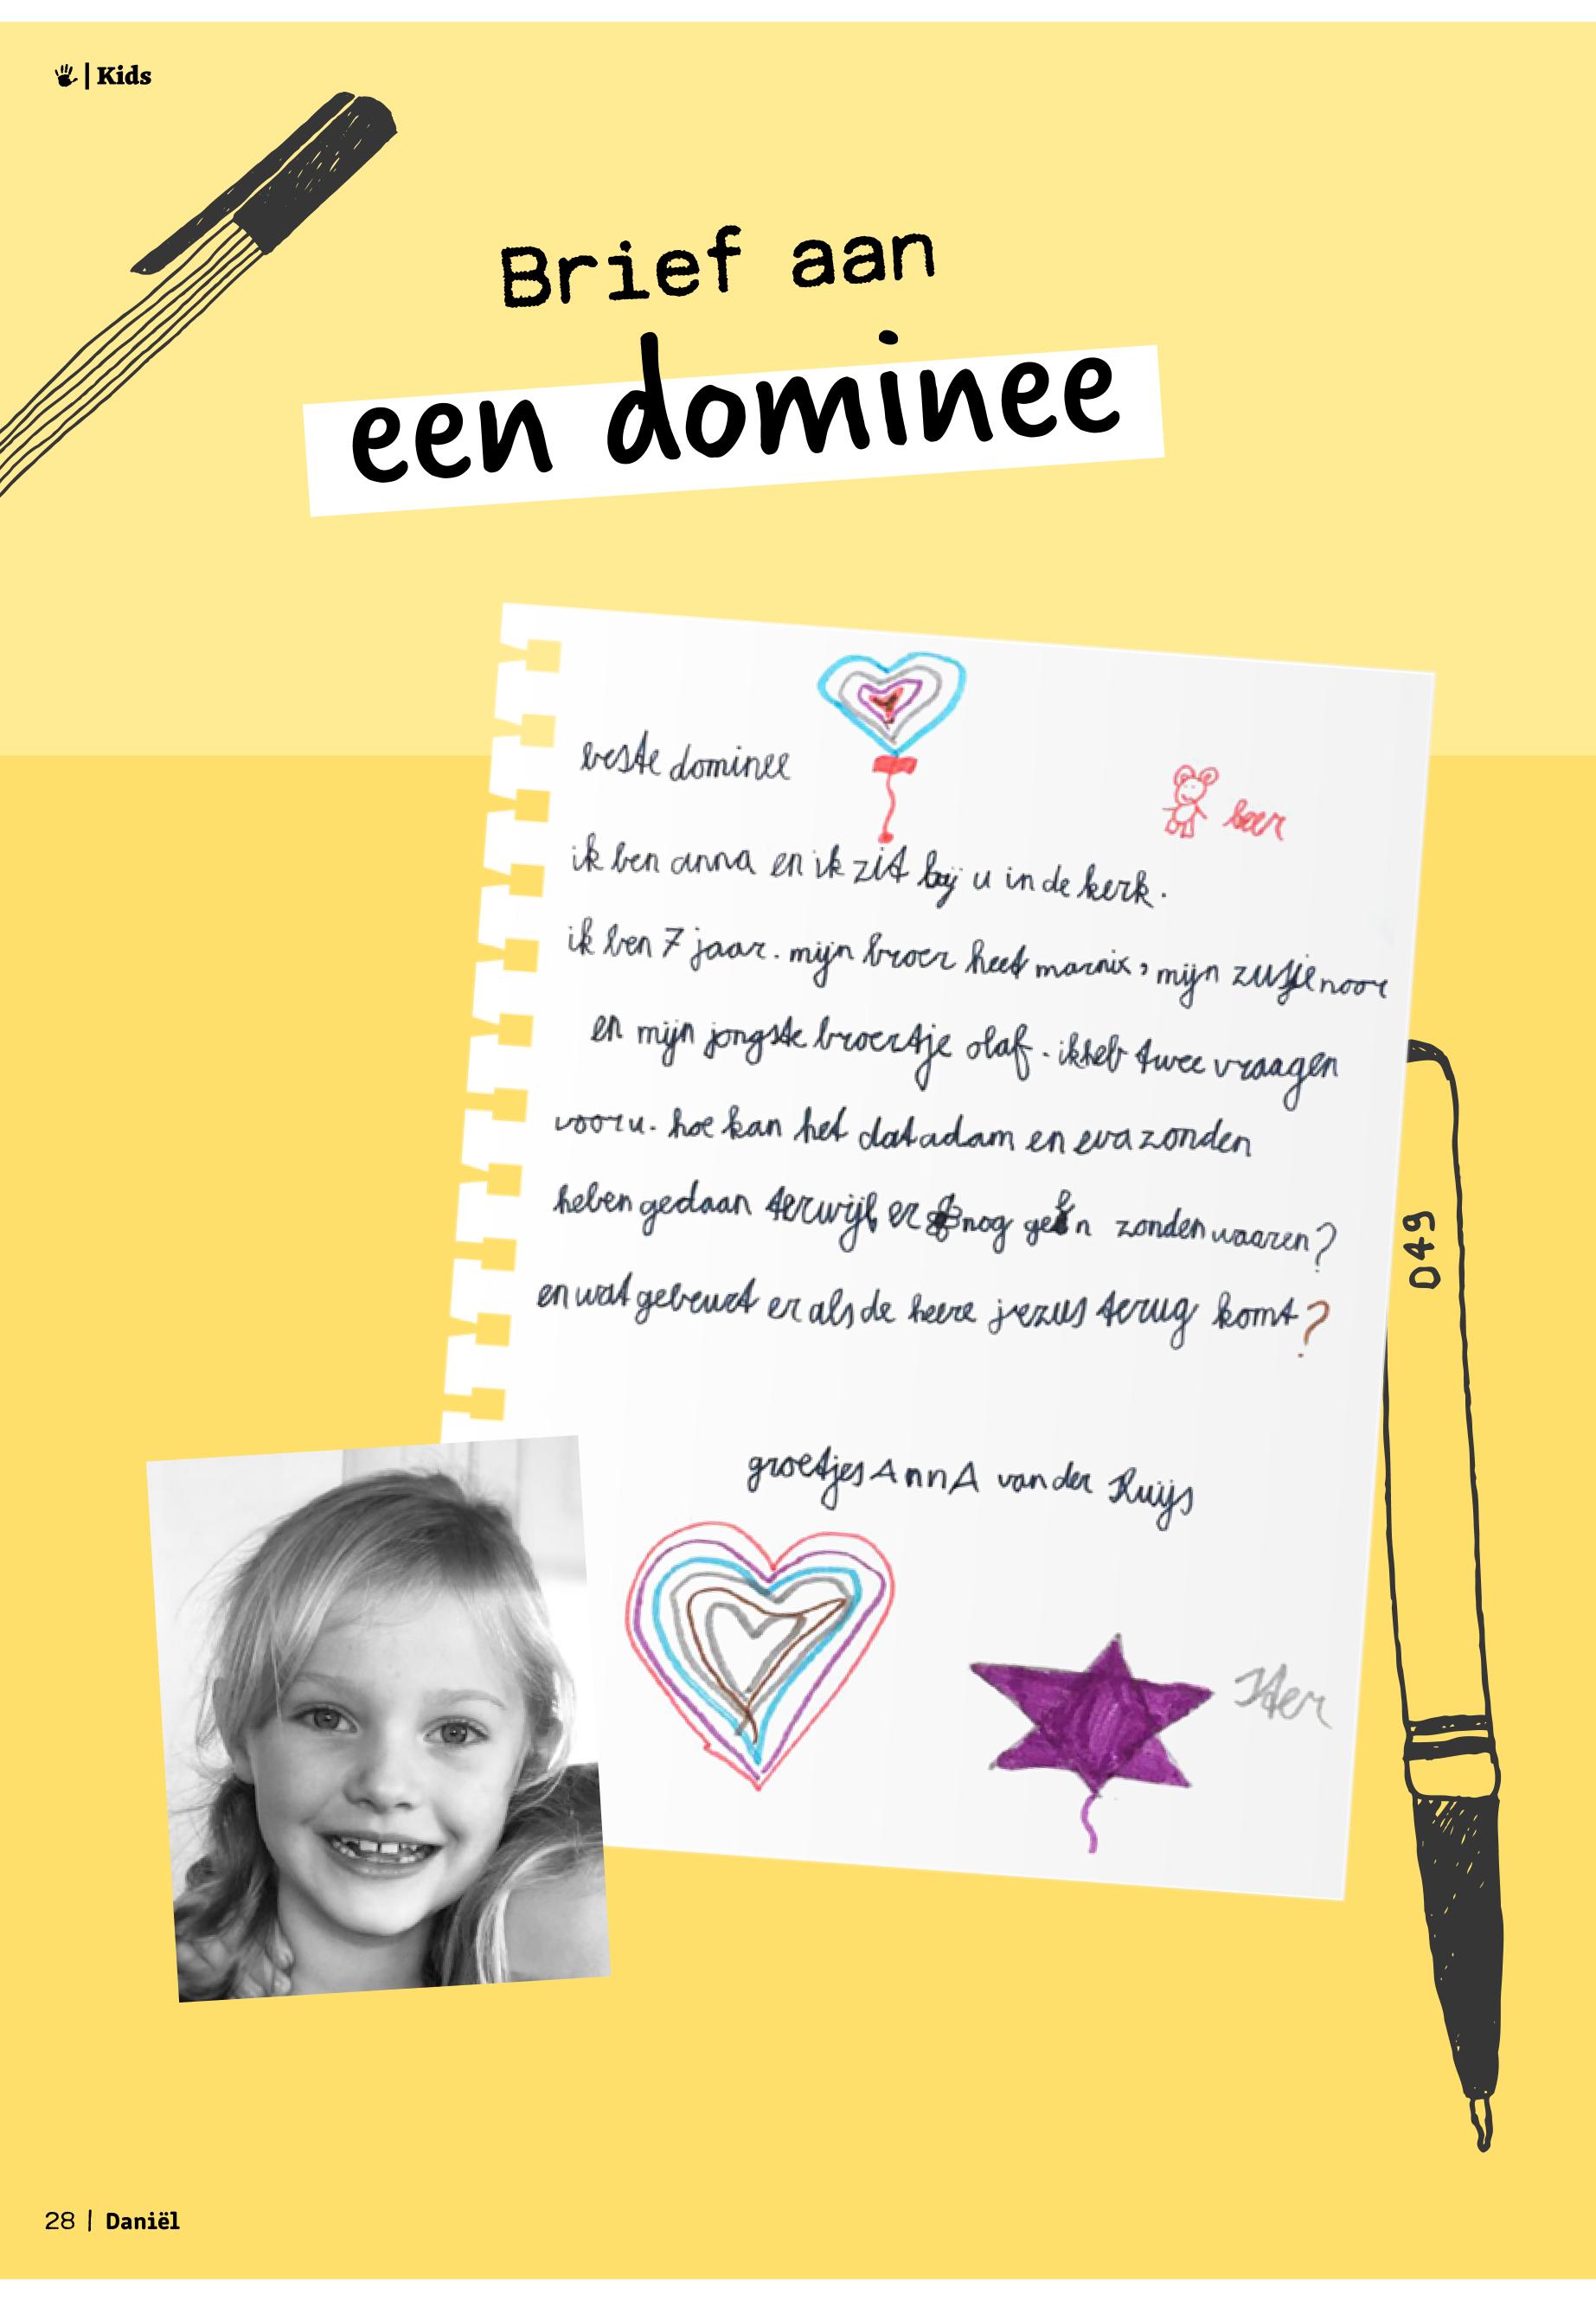 | Kids
Brief aan
een dominee
beste dominee
beer
ik ben anna en ik zit bij u in de kerk.
ik ben 7 jaar. mijn broer heet marnix, mijn zusje noor
en mijn jongste broertje olaf. ik heb twee vraagen
voor u. hoe kan het dat adam en eva zonden
heben gedaan terwijl er nog geen zonden waaren?
en wat gebeurt er als de heere jezus terug komt?
groetjes AnnA van der Kuijs
ster
D49
28 | Daniël